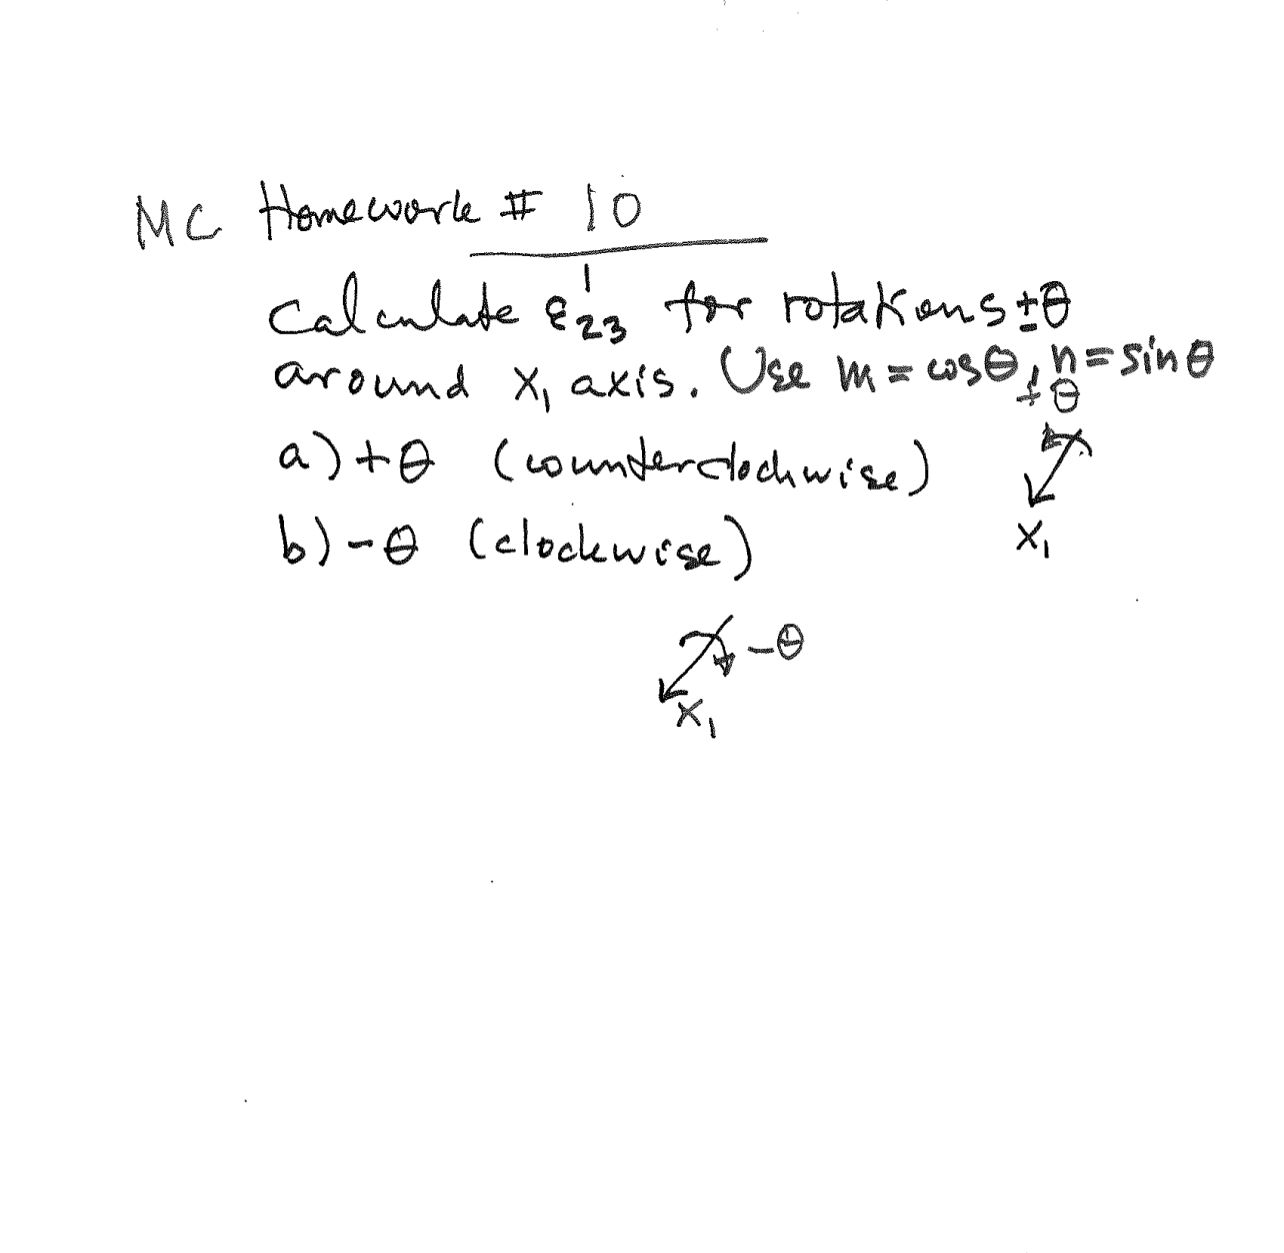 MC Homework # 10
Calculate ε'₂₃ for rotations ±θ
around X₁ axis. Use m = cosθ, n = sinθ
+θ
a) +θ (counterclockwise)
X₁
b) -θ (clockwise)
-θ
X₁